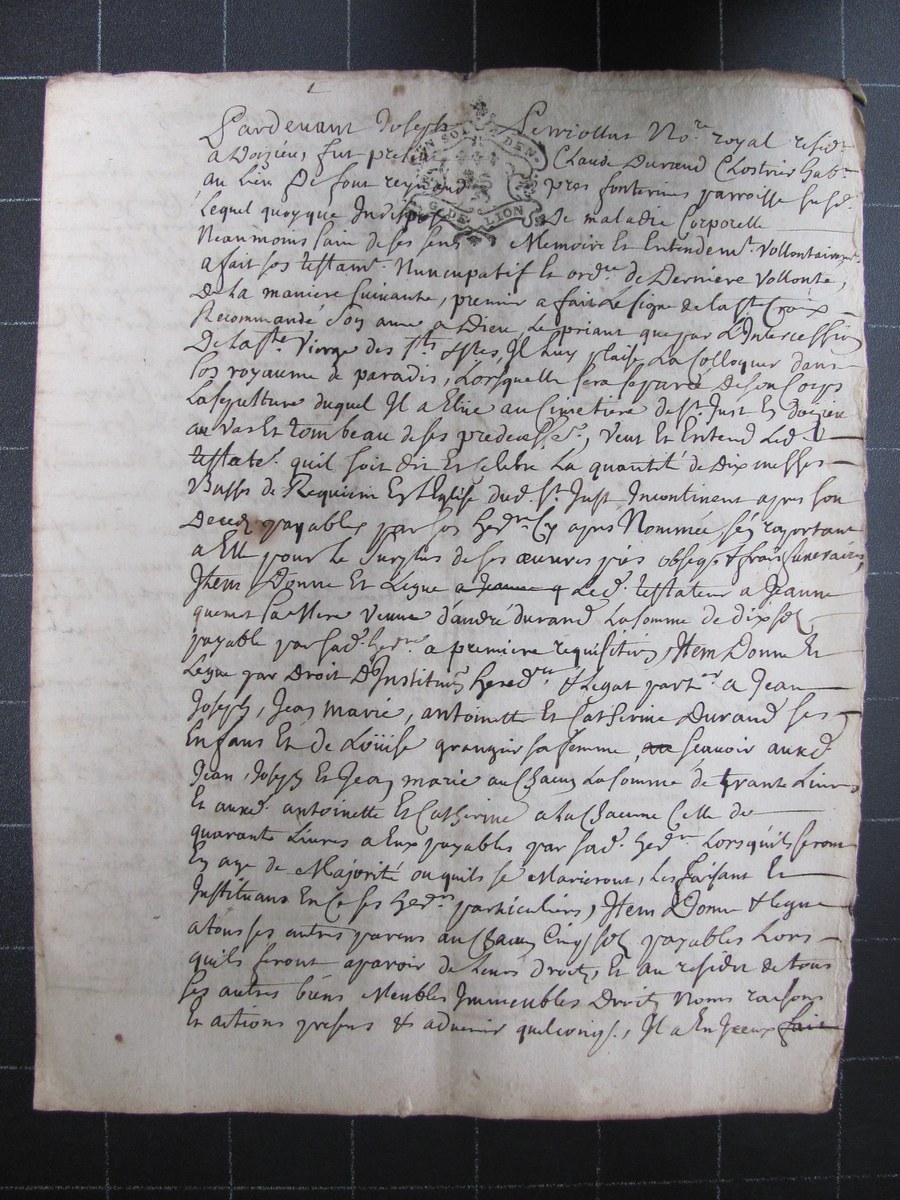 Pardevant Joseph No.re royal resid.t
a Doizieu, fut present Claude Durand Clostrier hab.nt
au lieu De pres fontenins parroisse susd.
Lequel quoyque Indisposé De maladie Corporelle
Neanmoins sain de ses sens Memoire Et Entendem.t Vollontairem.t
a fait son testam.t Nuncupatif Et ord.ce de Derniere Vollonté,
De la maniere suivante, premier a fait le signe de la S.te Croix
Recommandé son ame a Dieu, Le priant que par L'Intercession
De la S.te Vierge des S.ts Il luy plaise La Colloquer dans
son royaume de paradis, Lorsquelle sera separée De son Corps
La sepulture duquel Il a Elüe au Cimetiere de S.t Just En doizieu
au Vas Et tombeau de ses predecesse.rs, Veut Et Entend Led.
testate.r quil soit dit Et Celebré La quantité de Dix messes
Basses de Requiem En l'Eglise dud. S.t Just Incontinent apres son
Decedz payables par son hered.re Cy apres Nommée s'en raportant
a Elle pour le surplus de ses œuvres pies obseqs & frais funeraires,
Item Donne Et Legue a Jeanne q Led. testateur a Jeanne
sa Mere Veuve d'andré durand La somme de dix sols
payable par sad. hered.re a premiere requisition, Item Donne Et
Legue par Droit D'Institution hered.re & Legat part.er a Jean
Joseph, Jean marie, antoinette Et Catherine Durand ses
Enfans Et de Loüise grangier sa femme, scavoir auxd.
Jean, Joseph Et Jean marie au Chacun La somme de trante Livres
Et auxd. antoinette Et Catherine a la Chacune Celle de
quarante Livres a Eux payables par sad. hered.re Lorsquils seront
En age de Majorité ou quils se Marieront, Les faisant Et
Instituans En Ce ses hered.rs particuliers, Item Donne & legue
a tous ses autres parens au Chacun Cinq sols payables Lors
quils feront aparoir de Leurs droits, Et au residu de tous
ses autres biens Meubles Immeubles Droits Noms raisons
Et actions presens & advenir quelconqs., Il a En Jceux fait
G. DE LION